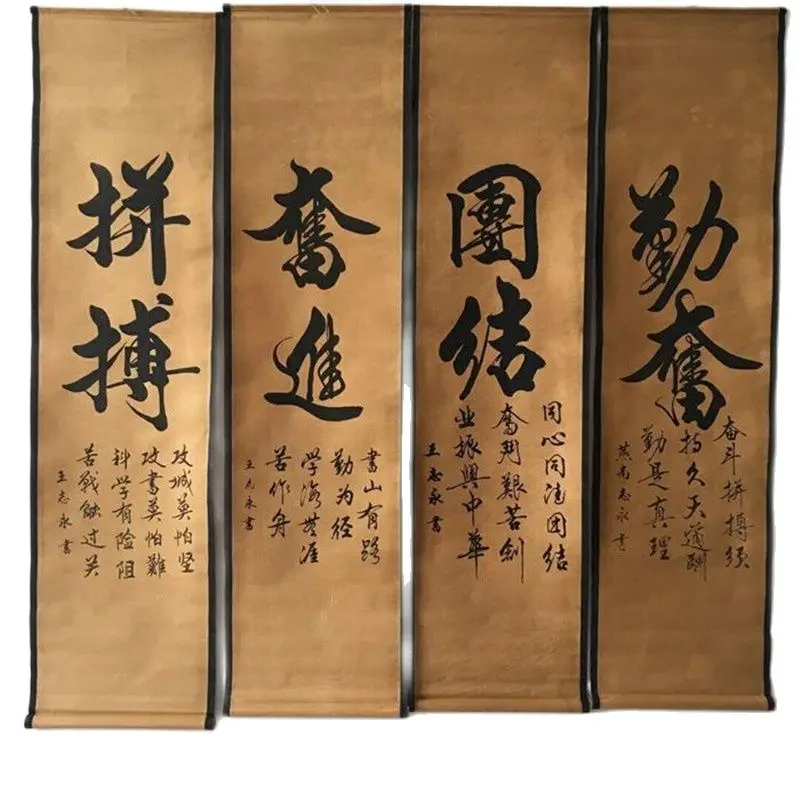 勤奮
奋斗拼搏须
持久天道酬
勤是真理
志永書
團结
同心同德团结
奮鬥艱苦創
业振興中華
王志永書
奮進
書山有路
勤为径
学海無涯
苦作舟
王志永書
拼搏
攻城莫怕坚
攻書莫怕難
科学有险阻
苦戰能过关
王志永書